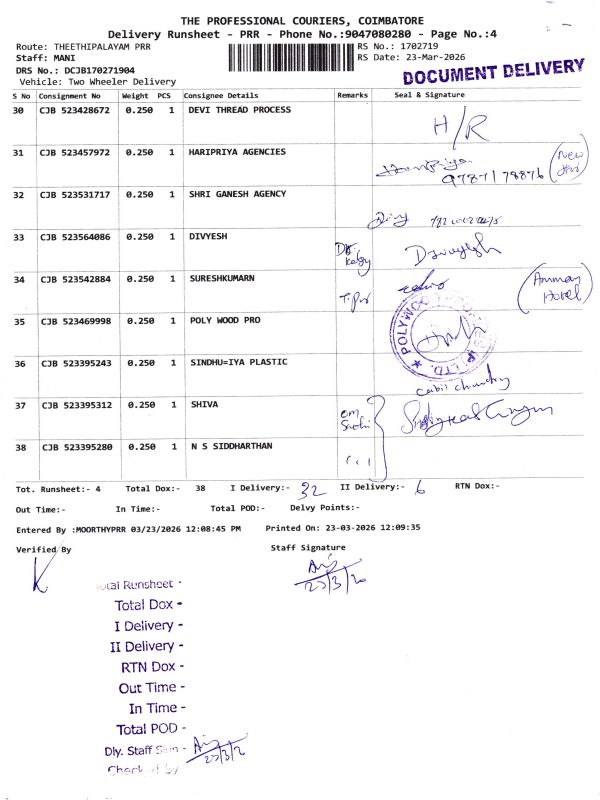 THE PROFESSIONAL COURIERS, COIMBATORE
Delivery Runsheet - PRR - Phone No.:9047080280 - Page No.:4
Route: THEETHIPALAYAM PRR RS No.: 1702719
Staff: MANI RS Date: 23-Mar-2026
DRS No.: DCJB170271904
Vehicle: Two Wheeler Delivery
DOCUMENT DELIVERY
S No Consignment No Weight PCS Consignee Details Remarks Seal & Signature
30 CJB 523428672 0.250 1 DEVI THREAD PROCESS H/R
31 CJB 523457972 0.250 1 HARIPRIYA AGENCIES
9787178876 (New
32 CJB 523531717 0.250 1 SHRI GANESH AGENCY
33 CJB 523564086 0.250 1 DIVYESH
34 CJB 523542884 0.250 1 SURESHKUMARN (Amman Hotel)
35 CJB 523469998 0.250 1 POLY WOOD PRO
POLYWOOD P. LTD.
36 CJB 523395243 0.250 1 SINDHU=IYA PLASTIC
37 CJB 523395312 0.250 1 SHIVA
38 CJB 523395280 0.250 1 N S SIDDHARTHAN
Tot. Runsheet:- 4 Total Dox:- 38 I Delivery:- 32 II Delivery:- 6 RTN Dox:-
Out Time:- In Time:- Total POD:- Delvy Points:-
Entered By :MOORTHYPRR 03/23/2026 12:08:45 PM Printed On: 23-03-2026 12:09:35
Verified By Staff Signature
Total Runsheet -
Total Dox -
I Delivery -
II Delivery -
RTN Dox -
Out Time -
In Time -
Total POD -
Dly. Staff Sign -
Checked by